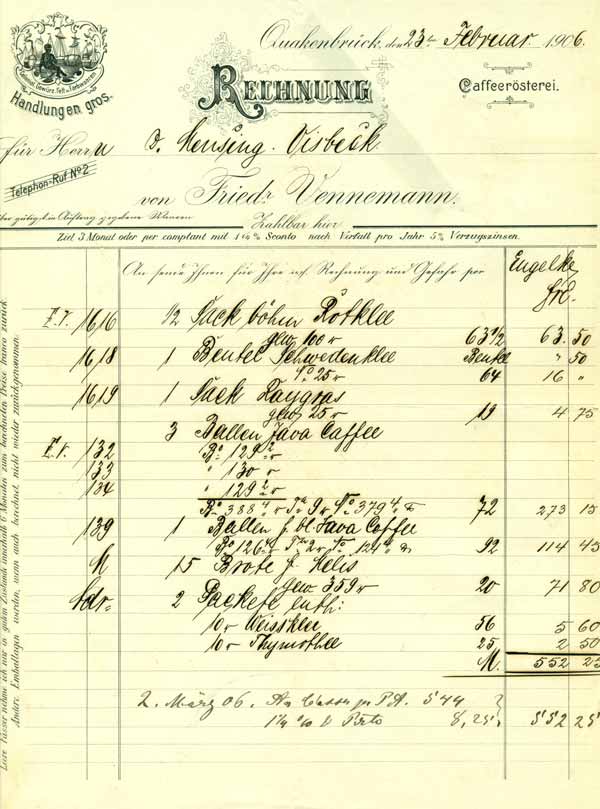 Colonial, Gewürz, Fett u. Farbwaaren
Handlung en gros.
Quakenbrück, den 23t Februar 1906.
RECHNUNG
Caffeerösterei.
für Herrn D. Mensing. Visbeck
Telephon-Ruf No 2
von Friedr. Vennemann.
über gütigst in Auftrag gegebene Waaren
Zahlbar hier
Ziel 3 Monat oder per comptant mit 1½% Sconto nach Verfall pro Jahr 5% Verzugszinsen.
An sende Ihnen für Ihre w. Rechnung und Gefahr per Engelke,
1616 1/2 Sack böhm Rotklee
gew 100 63 1/2 63. 50
1618 1 Beutel Schwedenklee Beutel " 50
No 25 64 16 "
1619 1 Sack Raygras
gew 25 19 4 75
3 Ballen Java Caffee
132 Bo 129 2
133 " 130
134 " 129 2
Bo 388 4 Ta 9 No 379 4 72 273 15
139 1 Ballen f bl. Java Coffee
Bo 126 Ta 2 No 124 92 114 45
M 15 Brote f. Melis
gew 359 20 71 80
2 Packete enth:
10 Weissklee 56 5 60
10 Thymothee 25 2 50
M. 552 25
2. März 06. An Cassa pr P.A. 544
1½ % & Porto 8,25 552 25
Leere Fässer nehme ich nur in gutem Zustande innerhalb 6 Monaten zum berechneten Preise franco zurück
Andere Emballagen werden, wenn auch berechnet, nicht wieder zurückgenommen.